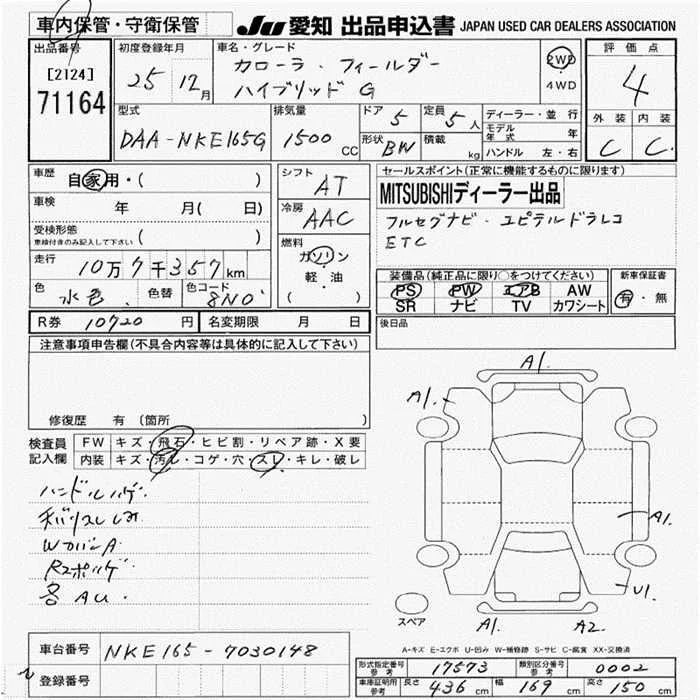 車内保管・守衛保管
JU 愛知 出品申込書 JAPAN USED CAR DEALERS ASSOCIATION
出品番号
[2124]
71164
初度登録年月
25 12月
車名・グレード
カローラ・フィールダー
ハイブリッド G
2WD
4WD
評価点
4
外装 内装
C C
型式
DAA-NKE165G
排気量
1500 CC
ドア 5
定員 5人
形状 BW
積載 kg
ディーラー・並行
モデル年式 年
ハンドル 左・右
車歴 自家用・( )
車検 年 月( 日)
受検形態
車検付きのみ記入して下さい ( )
走行
10万7千357km
色 水色 色替 色コード 8N0
シフト AT
冷房 AAC
燃料
ガソリン
軽・油
( )
セールスポイント(正常に機能するものに限ります)
MITSUBISHIディーラー出品
フルセグナビ・ユピテルドラレコ
ETC
装備品(純正品に限り○をつけてください)
PS PW エアB AW
SR ナビ TV カワシート
新車保証書
有・無
R券 10720円 名変期限 月 日
後日品
注意事項申告欄(不具合内容等は具体的に記入して下さい)
修復歴 有 (箇所 )
検査員
記入欄
FW キズ・飛石・ヒビ割・リペア跡・X要
内装 キズ・汚れ・コゲ・穴・スレ・キレ・破レ
ハンドルハゲ
WカバーA
各AU.
A1.
A1.
A1
U1
A1.
A2.
スペア
A-キズ E-エクボ U-凹み W-補修跡 S-サビ C-腐食 XX-交換済
車台番号 NKE165-7030148
登録番号
形式指定番号 参考 17573
類別区分番号 参考 0002
車庫証明用 参考 長さ 436cm 幅 169cm 高さ 150cm